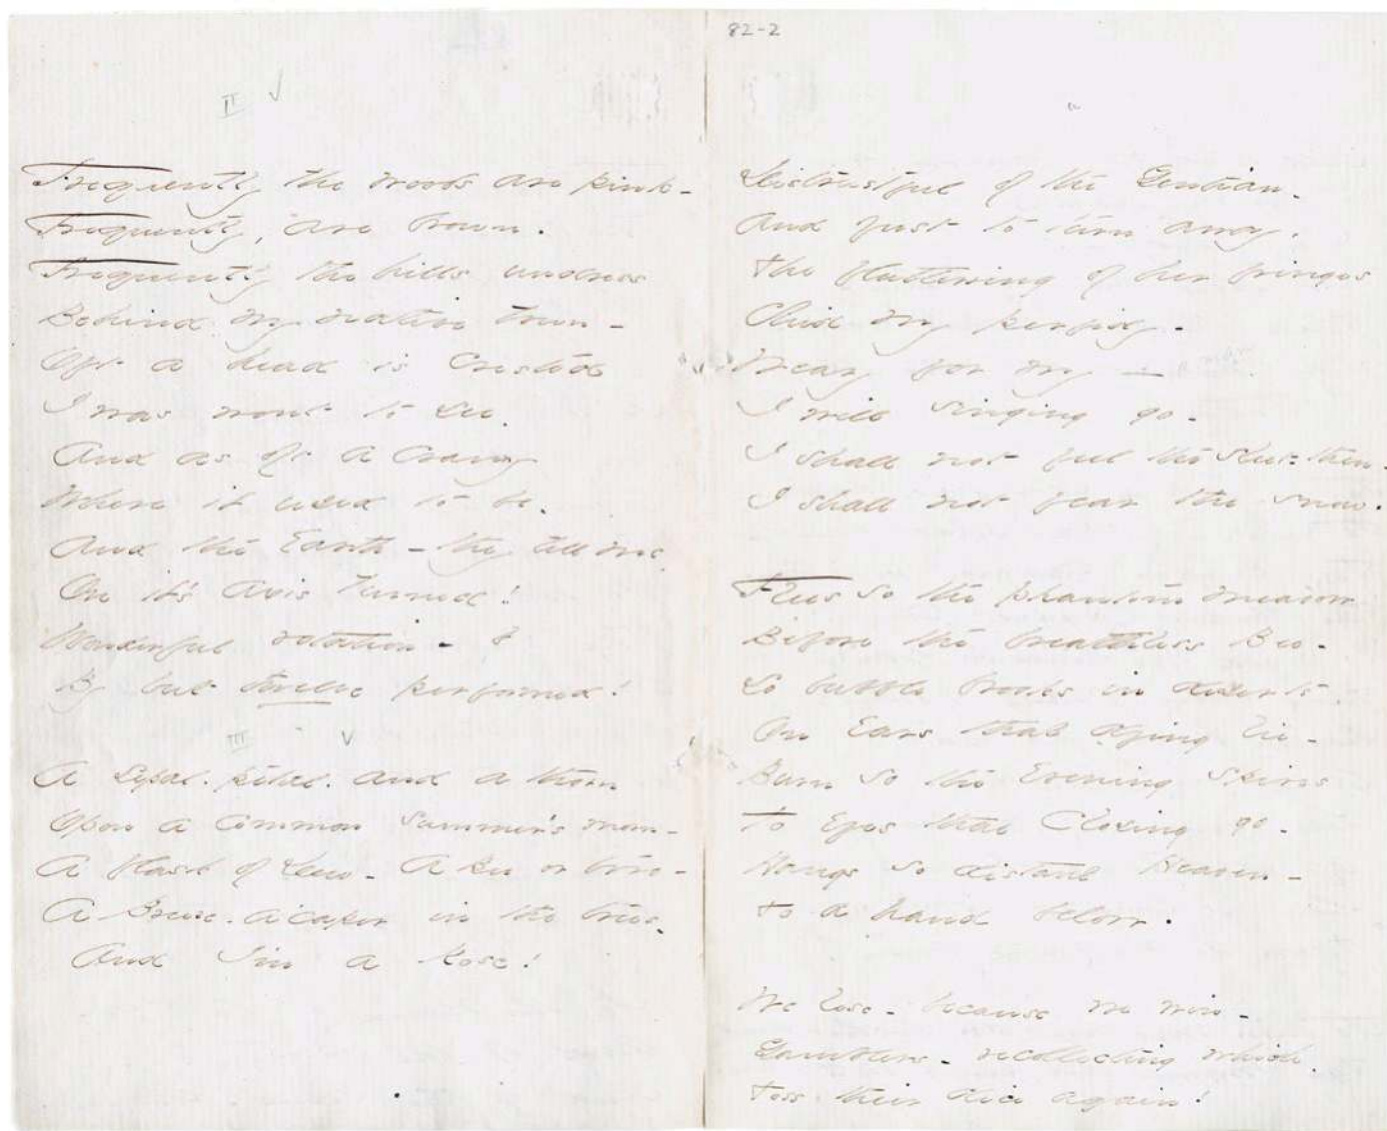 II ✓
Frequently the woods are pink -
Frequently, are brown.
Frequently the hills undress
Behind my native town -
Oft a head is crested
I was wont to see.
And as oft a cranny
Where it used to be.
And the Earth - they tell me
On it's axis turned!
Wonderful rotation -
By but twelve performed!
III ✓
A sepal. petal. and a thorn
Upon a common summer's morn -
A flask of Dew - A Bee or two -
A Breeze. a'caper in the trees.
And I'm a Rose!
82-2
Distrustful of the Gentian -
And just to turn away.
The fluttering of her fringes
Chid my perfidy -
Weary for my —
I will singing go -
I shall not feel the sleet - then -
I shall not fear the snow.
Flees so the phantom meadow
Before the breathless Bee -
So bubble brooks in deserts
On Ears that dying lie -
Burn so the Evening Spires
To Eyes that Closing go -
Hangs so distant Heaven -
To a hand below.
We lose - because we win -
Gamblers - recollecting which
Toss their dice again!